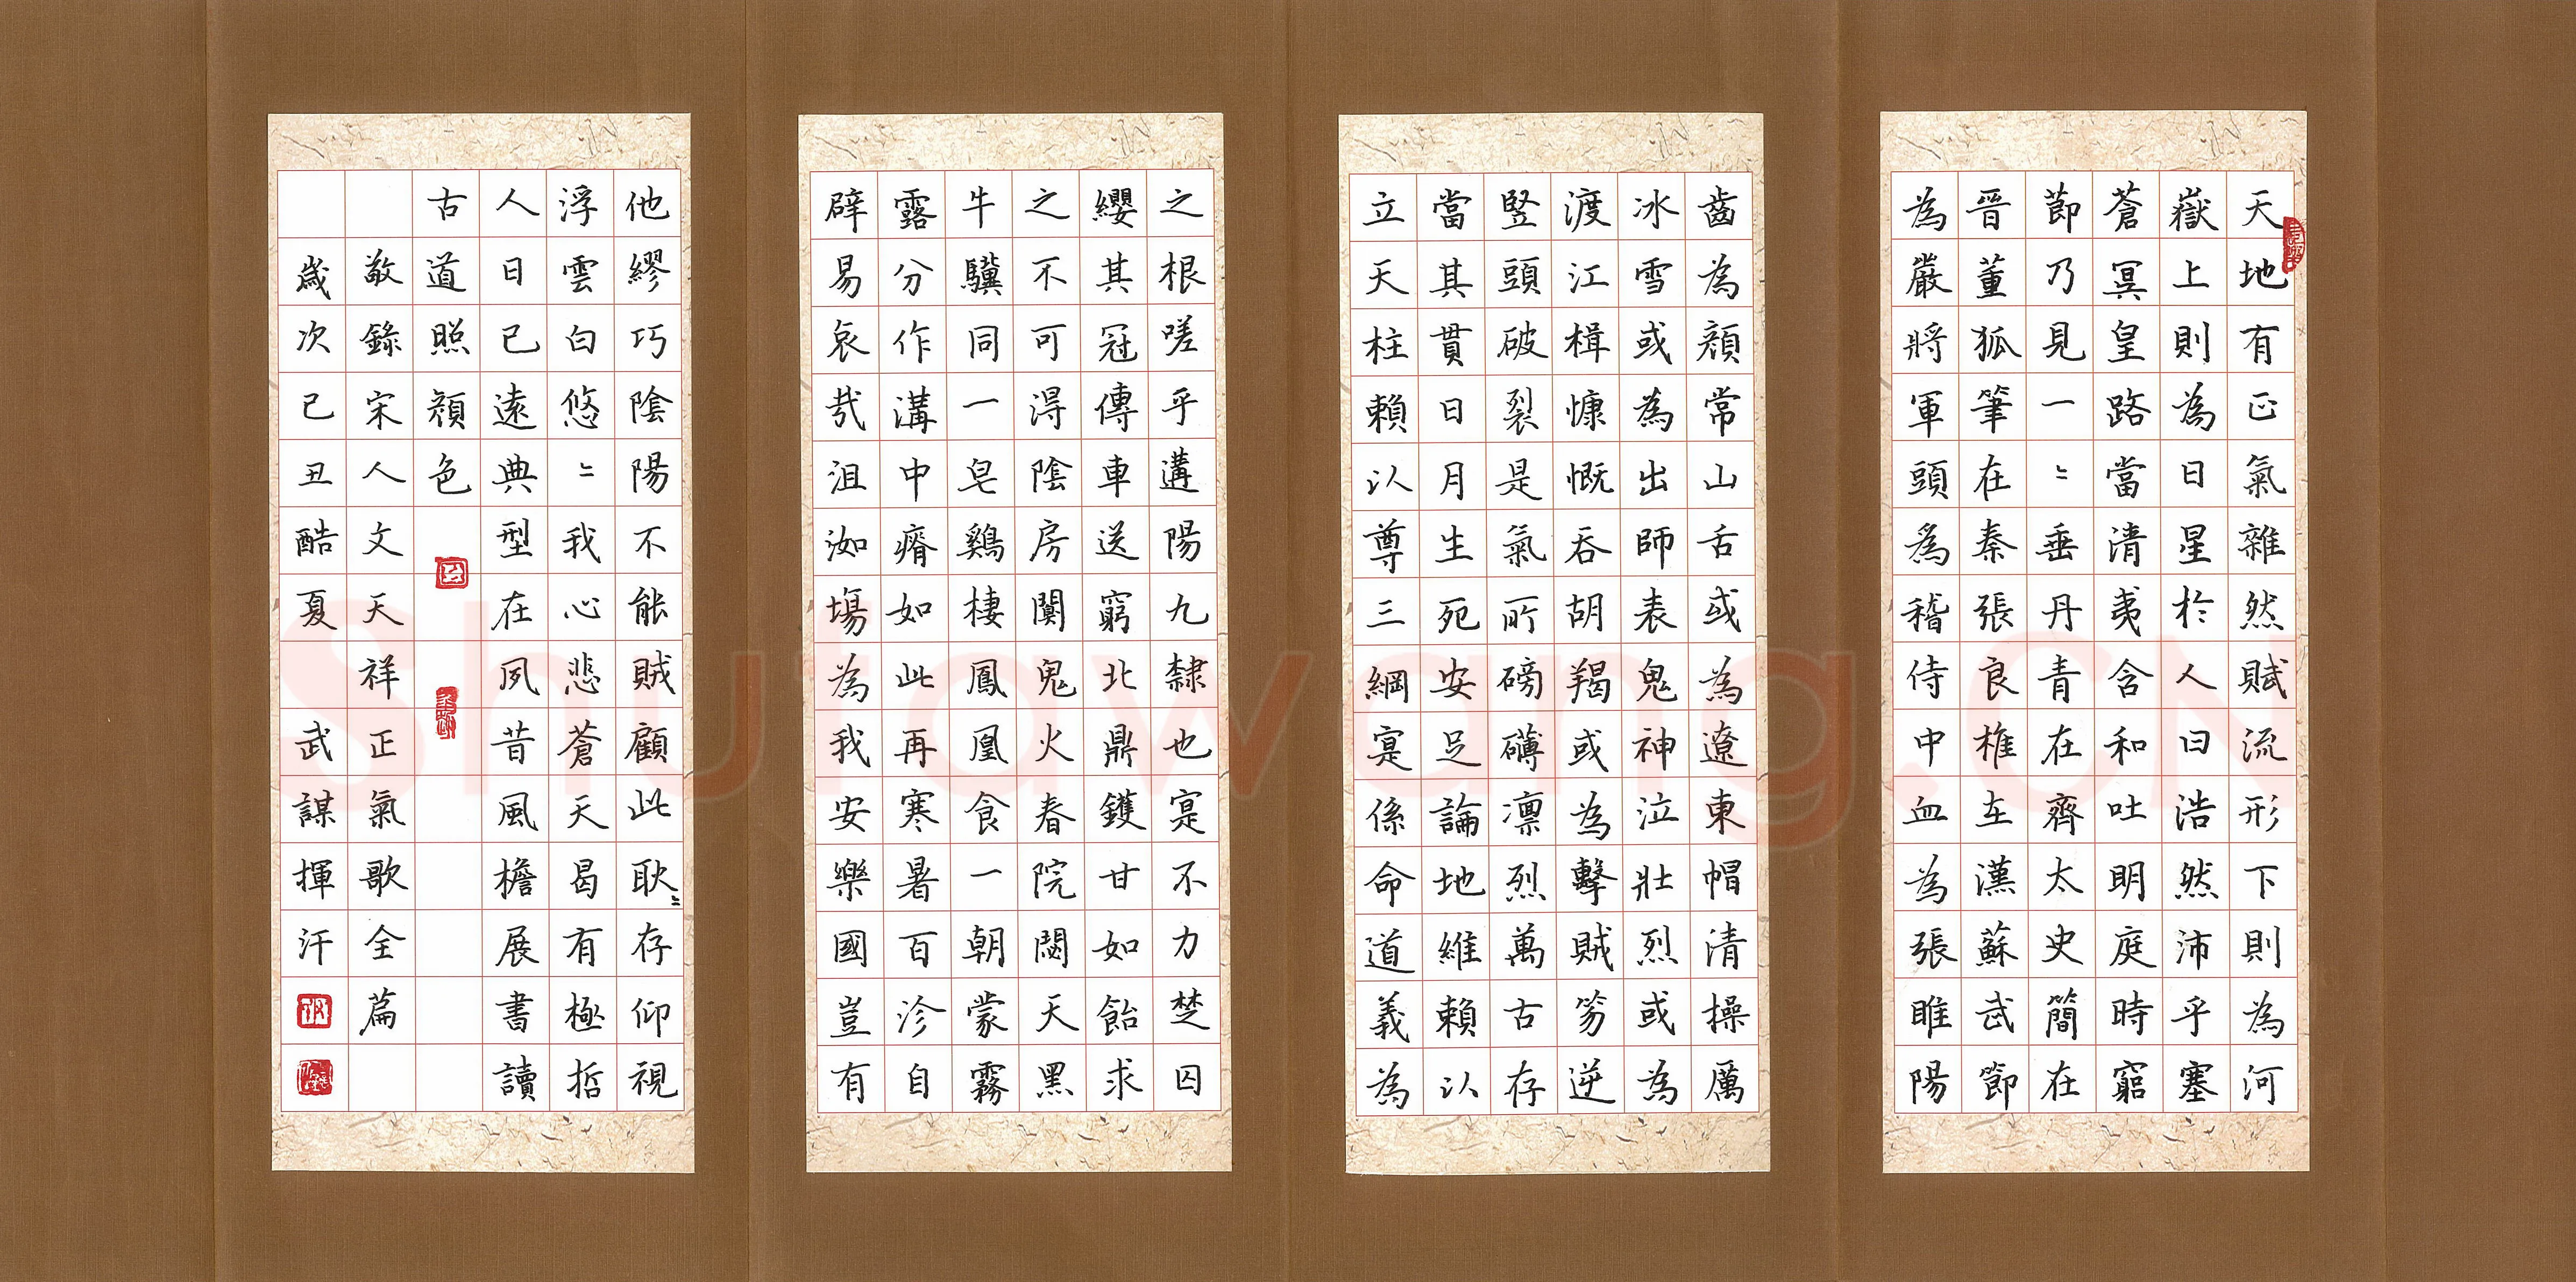 天地有正氣雜然賦流形下則為河
嶽上則為日星於人曰浩然沛乎塞
蒼冥皇路當清夷含和吐明庭時窮
節乃見一〻垂丹青在齊太史簡在
晉董狐筆在秦張良椎在漢蘇武節
為嚴將軍頭為稽侍中血為張睢陽
齒為顏常山舌或為遼東帽清操厲
冰雪或為出師表鬼神泣壯烈或為
渡江楫慷慨吞胡羯或為擊賊笏逆
豎頭破裂是氣所磅礴凛烈萬古存
當其貫日月生死安足論地維賴以
立天柱賴以尊三綱寔係命道義為
之根嗟乎遘陽九隸也寔不力楚囚
纓其冠傳車送窮北鼎鑊甘如飴求
之不可得陰房闃鬼火春院閟天黑
牛驥同一皂鷄棲鳳凰食一朝蒙霧
露分作溝中瘠如此再寒暑百沴自
辟易哀哉沮洳場為我安樂國豈有
他繆巧陰陽不能賊顧此耿〻存仰視
浮雲白悠〻我心悲蒼天曷有極哲
人日已遠典型在夙昔風檐展書讀
古道照顏色
敬錄宋人文天祥正氣歌全篇
歲次己丑酷夏 武謀揮汗
Shufawang.CN